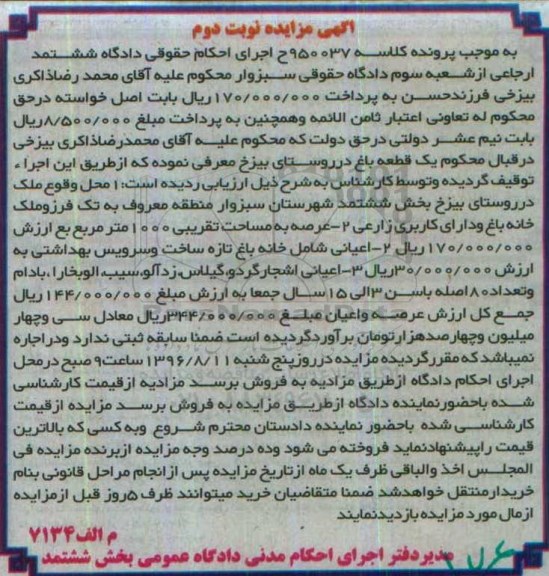 اگهی مزایده نوبت دوم
به موجب پرونده کلاسه ۹۵۰۰۳۷ح اجرای احکام حقوقی دادگاه ششتمد
ارجاعی ازشعبه سوم دادگاه حقوقی سبزوار محکوم علیه آقای محمد رضاذاکری
بیزخی فرزندحسن به پرداخت ۱۷۰/۰۰۰/۰۰۰ریال بابت اصل خواسته درحق
محکوم له تعاونی اعتبار ثامن الائمه وهمچنین به پرداخت مبلغ ۸/۵۰۰/۰۰۰ریال
بابت نیم عشر دولتی درحق دولت که محکوم علیه آقای محمدرضاذاکری بیزخی
درقبال محکوم یک قطعه باغ درروستای بیزخ معرفی نموده که ازطریق این اجراء
توقیف گردیده وتوسط کارشناس به شرح ذیل ارزیابی ردیده است:۱ محل وقوع ملک
درروستای بیزخ بخش ششتمد شهرستان سبزوار منطقه معروف به تک فرزوملک
خانه باغ ودارای کاربری زارعی ۲-عرصه به مساحت تقریبی ۱۰۰۰ متر مربع بع ارزش
۱۷۰/۰۰۰/۰۰۰ ریال ۲-اعیانی شامل خانه باغ تازه ساخت وسرویس بهداشتی به
ارزش ۳۰/۰۰۰/۰۰۰ریال ۳-اعیانی اشجارگردو،گیلاس،زدآلو،سیب،الوبخارا،بادام
وتعداد۸۰اصله باسن ۳الی ۱۵ سال جمعا به ارزش مبلغ ۱۴۴/۰۰۰/۰۰۰ ریال
جمع کل ارزش عرصه واعیان مبلغ ۳۴۴/۰۰۰/۰۰۰ریال معادل سی وچهار
میلیون وچهارصدهزارتومان برآوردگردیده است ضمنا سابقه ثبتی ندارد ودراجاره
نمیباشد که مقررگردیده مزایده درروزپنج شنبه ۱۳۹۶/۸/۱۱ ساعت۹ صبح درمحل
اجرای احکام دادگاه ازطریق مزادیه به فروش برسد مزادیه ازقیمت کارشناسی
شده باحضورنماینده دادگاه ازطریق مزایده به فروش برسد مزایده ازقیمت
کارشناسی شده باحضور نماینده دادستان محترم شروع وبه کسی که بالاترین
قیمت راپیشنهادنماید فروخته می شود وده درصد وجه مزایده ازبرنده مزایده فی
المجلس اخذ والباقی ظرف یک ماه ازتاریخ مزایده پس ازانجام مراحل قانونی بنام
خریدارمنتقل خواهدشد ضمنا متقاضیان خرید میتوانند ظرف ۵روز قبل ازمزایده
ازمال مورد مزایده بازدیدنمایند
م الف۷۱۳۴
مدیردفتر اجرای احکام مدنی دادگاه عمومی بخش ششتمد